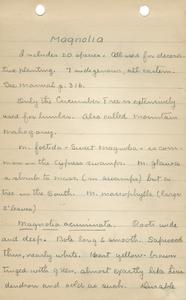 Magnolia
Includes 20 species. All used for decora-
tive planting. 7 indigenous, all eastern.
See manual g. 316.
Only the Cucumber Tree is extensively
used for lumber. Also called Mountain
Mahogany.
M. foetida - Sweet Magnolia - is com-
mon in the Cypress swamps. M. glauca
a shrub to Mass (in swamps) but a
tree in the South. M. macrophylla (large
leaves)
Magnolia acuminata. Roots wide
and deep. Bole long & smooth. Sapwood
thin, nearly white. Heart yellow-brown
tinged with green, almost exactly like Lirio-
dendron and sold as such. Durable